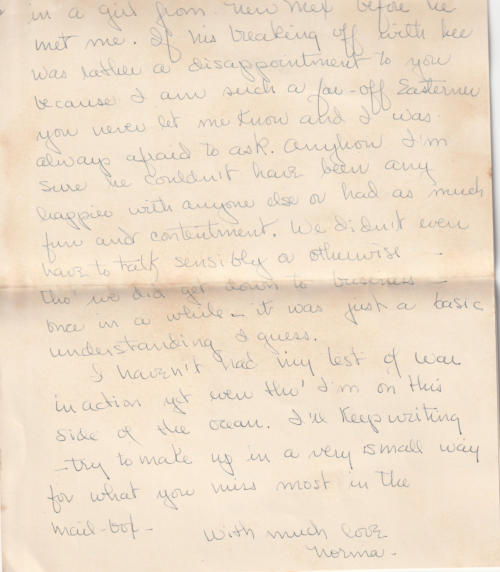 in a girl from New Mex before he
met me. If his breaking off with her
was rather a disappointment to you
because I am such a far-off Easterner
you never let me know and I was
always afraid to ask. Anyhow I'm
sure he couldn't have been any
happier with anyone else or had as much
fun and contentment. We didn't even
have to talk sensibly or otherwise -
tho' we did get down to business -
once in a while - it was just a basic
understanding I guess.
I haven't had my lest of war
in action yet even tho' I'm on this
side of the ocean. I'll keep writing
- try to make up in a very small way
for what you miss most in the
mail-box -
With much love
Norma -